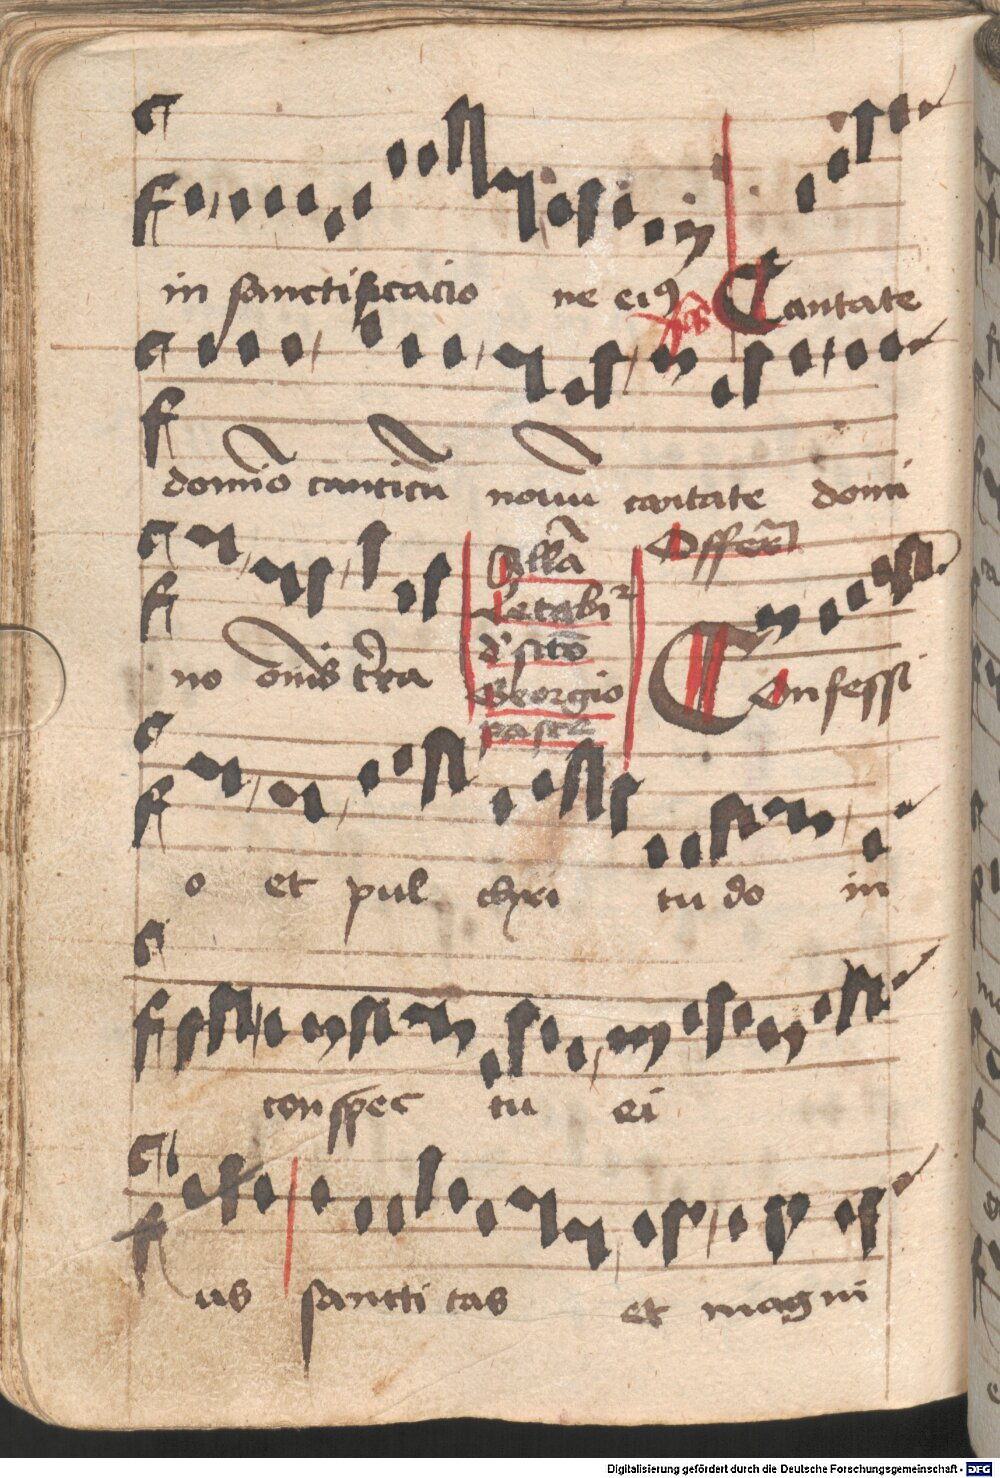 in sanctificacio ne eiꝯ Cantate
domīo canticū nouū cantate domi
no om̄is t̄rra
Allā
Letabiꝛ
d' sctō
Georgio
pasce
Offerr̄
Confessi
o et pul chri tu do in
conspec tu ei
us sancti tas et magni
Digitalisierung gefördert durch die Deutsche Forschungsgemeinschaft - DFG